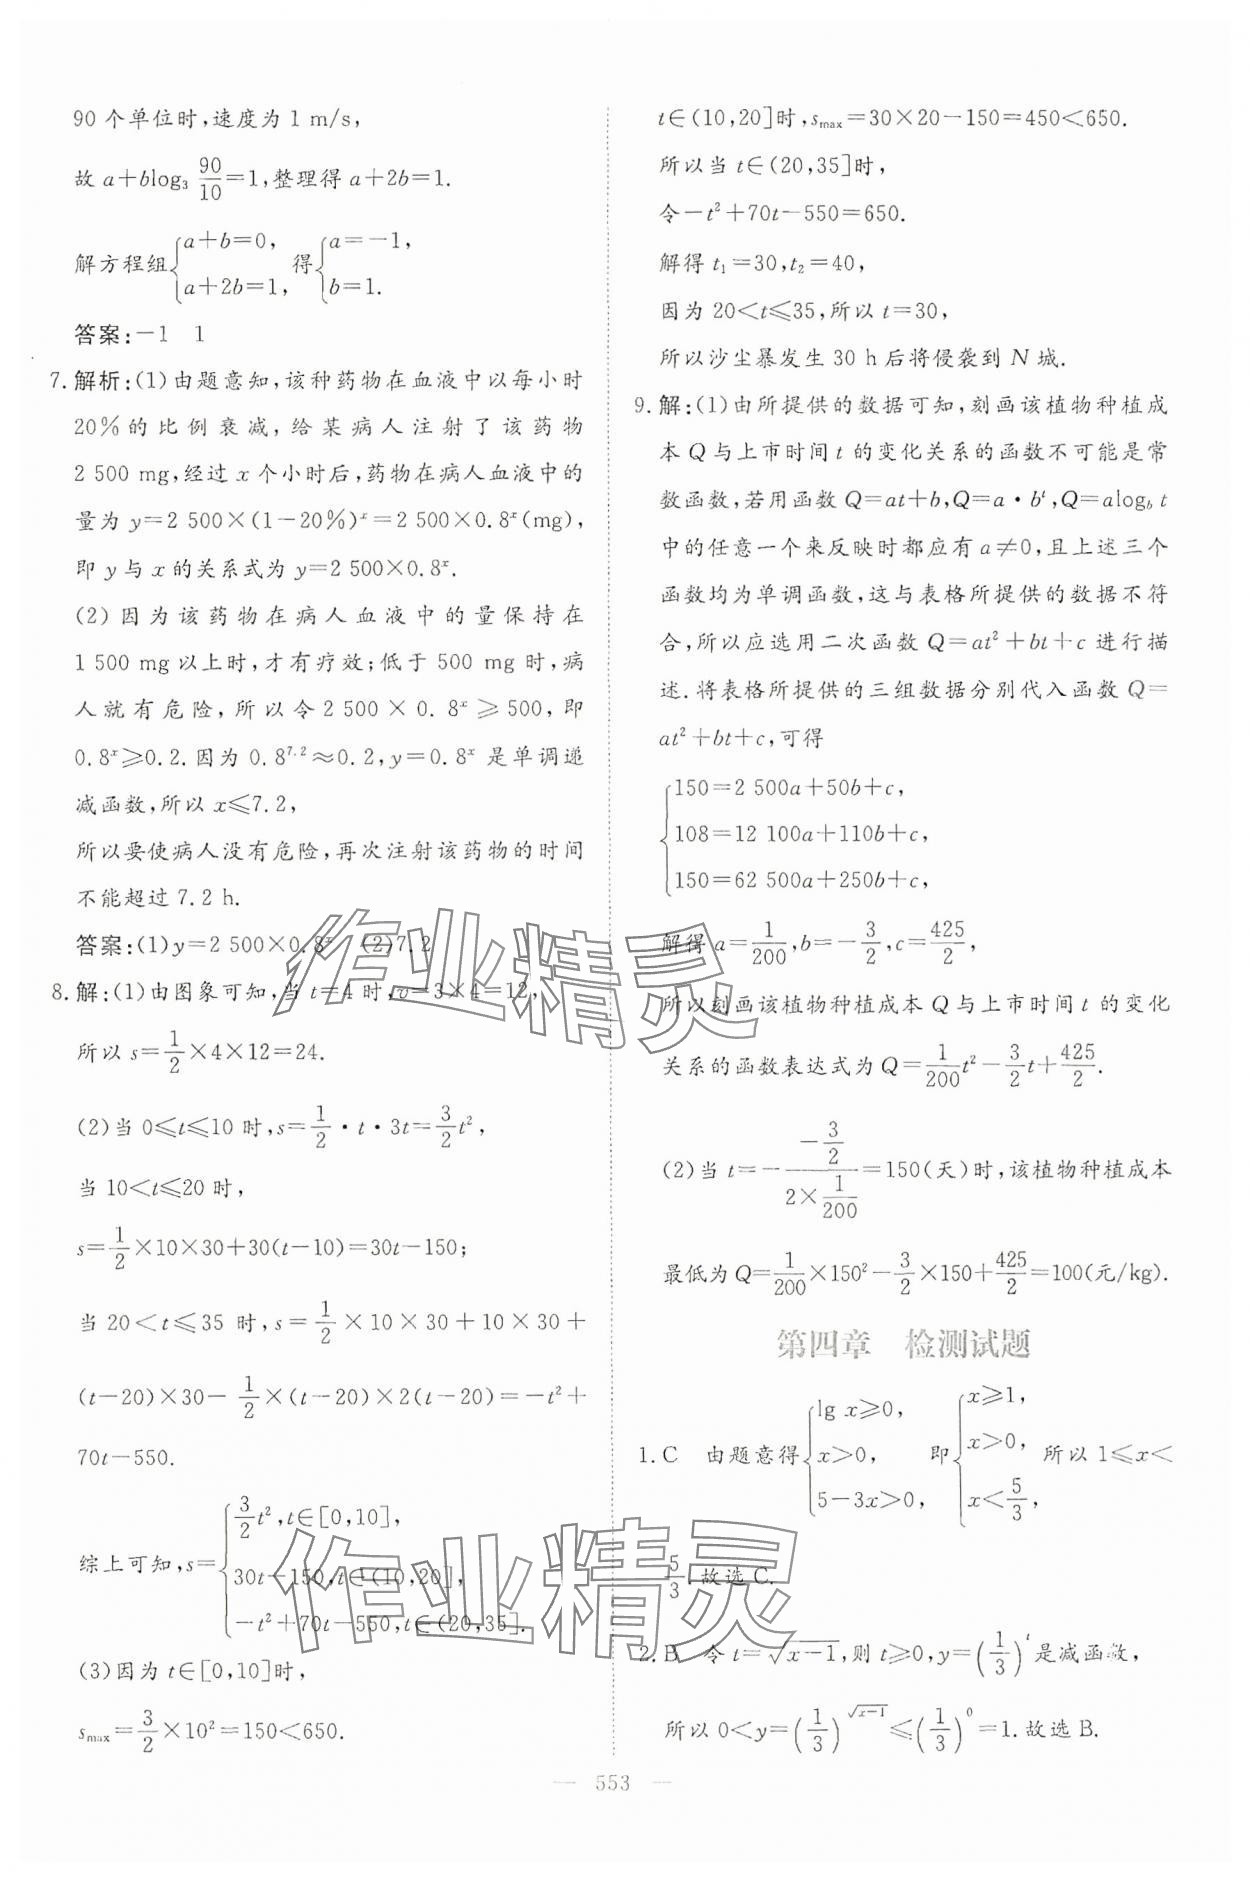 90 个单位时,速度为 1 m/s,
故 a+blog₃ 90/10=1,整理得 a+2b=1.
解方程组{a+b=0, a+2b=1, 得{a=-1, b=1.
答案:-1 1
7.解析:(1)由题意知,该种药物在血液中以每小时
20%的比例衰减,给某病人注射了该药物
2 500 mg,经过 x 个小时后,药物在病人血液中的
量为 y=2 500×(1-20%)ˣ=2 500×0.8ˣ(mg),
即 y 与 x 的关系式为 y=2 500×0.8ˣ.
(2)因为该药物在病人血液中的量保持在
1 500 mg 以上时,才有疗效;低于 500 mg 时,病
人就有危险,所以令 2 500×0.8ˣ≥500,即
0.8ˣ≥0.2.因为 0.8^7.2≈0.2,y=0.8ˣ 是单调递
减函数,所以 x≤7.2,
所以要使病人没有危险,再次注射该药物的时间
不能超过 7.2 h.
答案:(1)y=2 500×0.8ˣ (2)7.2
8.解:(1)由图象可知,当 t=4 时,v=3×4=12,
所以 s=1/2×4×12=24.
(2)当 0≤t≤10 时,s=1/2·t·3t=3/2t²,
当 10<t≤20 时,
s=1/2×10×30+30(t-10)=30t-150;
当 20<t≤35 时,s=1/2×10×30+10×30+
(t-20)×30-1/2×(t-20)×2(t-20)=-t²+
70t-550.
综上可知,s={3/2t²,t∈[0,10],
30t-150,t∈(10,20],
-t²+70t-550,t∈(20,35].
(3)因为 t∈[0,10]时,
s_max=3/2×10²=150<650.
t∈(10,20]时,s_max=30×20-150=450<650.
所以当 t∈(20,35]时,
令-t²+70t-550=650.
解得 t₁=30,t₂=40,
因为 20<t≤35,所以 t=30,
所以沙尘暴发生 30 h 后将侵袭到 N 城.
9.解:(1)由所提供的数据可知,刻画该植物种植成
本 Q 与上市时间 t 的变化关系的函数不可能是常
数函数,若用函数 Q=at+b,Q=a·bᵗ,Q=alog_b t
中的任意一个来反映时都应有 a≠0,且上述三个
函数均为单调函数,这与表格所提供的数据不符
合,所以应选用二次函数 Q=at²+bt+c 进行描
述.将表格所提供的三组数据分别代入函数 Q=
at²+bt+c,可得
{150=2 500a+50b+c,
108=12 100a+110b+c,
150=62 500a+250b+c,
解得 a=1/200,b=-3/2,c=425/2,
所以刻画该植物种植成本 Q 与上市时间 t 的变化
关系的函数表达式为 Q=1/200t²-3/2t+425/2.
(2)当 t=-(-3/2)/(2×1/200)=150(天)时,该植物种植成本
最低为 Q=1/200×150²-3/2×150+425/2=100(元/kg).
第四章 检测试题
1.C 由题意得{lg x≥0, x>0, 5-3x>0, 即{x≥1, x>0, x<5/3, 所以 1≤x<
5/3.故选 C.
2.B 令 t=√(x-1),则 t≥0,y=(1/3)ᵗ是减函数,
所以 0<y=(1/3)^√(x-1)≤(1/3)⁰=1.故选 B.
— 553 —
作业精灵
作业精灵